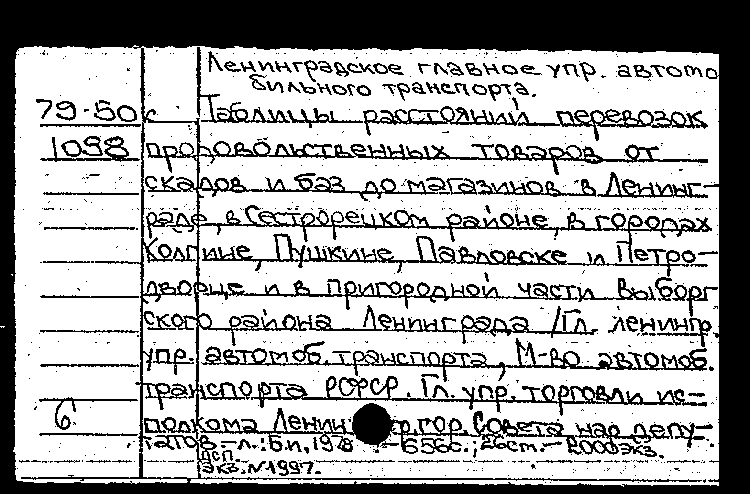 Ленинградское главное упр. автомо
бильного транспорта.
79-50 с Таблицы расстояний перевозок
1098 продовольственных товаров от
скадов и баз до магазинов в Ленинг-
раде, в Сестрорецком районе, в городах
Колпине, Пушкине, Павловске и Петро-
дворце и в пригородной части Выборг
ского района Ленинграда /Гл. ленингр.
упр. автомоб. транспорта, М-во автомоб.
транспорта РСФСР. Гл. упр. торговли ис-
6 полкома Ленин р. гор. Совета нар депу-
татов – Л.: Б.и., 1978 – 656с.; 26см. – 2000экз.
ДСП.
экз. N1997.